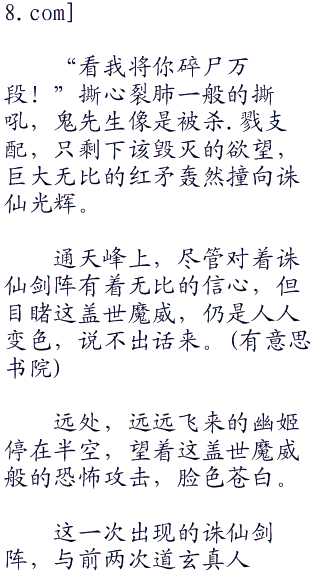 8.com]
“看我将你碎尸万
段！”撕心裂肺一般的撕
吼，鬼先生像是被杀.戮支
配，只剩下该毁灭的欲望，
巨大无比的红矛轰然撞向诛
仙光辉。
通天峰上，尽管对着诛
仙剑阵有着无比的信心，但
目睹这盖世魔威，仍是人人
变色，说不出话来。(有意思
书院)
远处，远远飞来的幽姬
停在半空，望着这盖世魔威
般的恐怖攻击，脸色苍白。
这一次出现的诛仙剑
阵，与前两次道玄真人